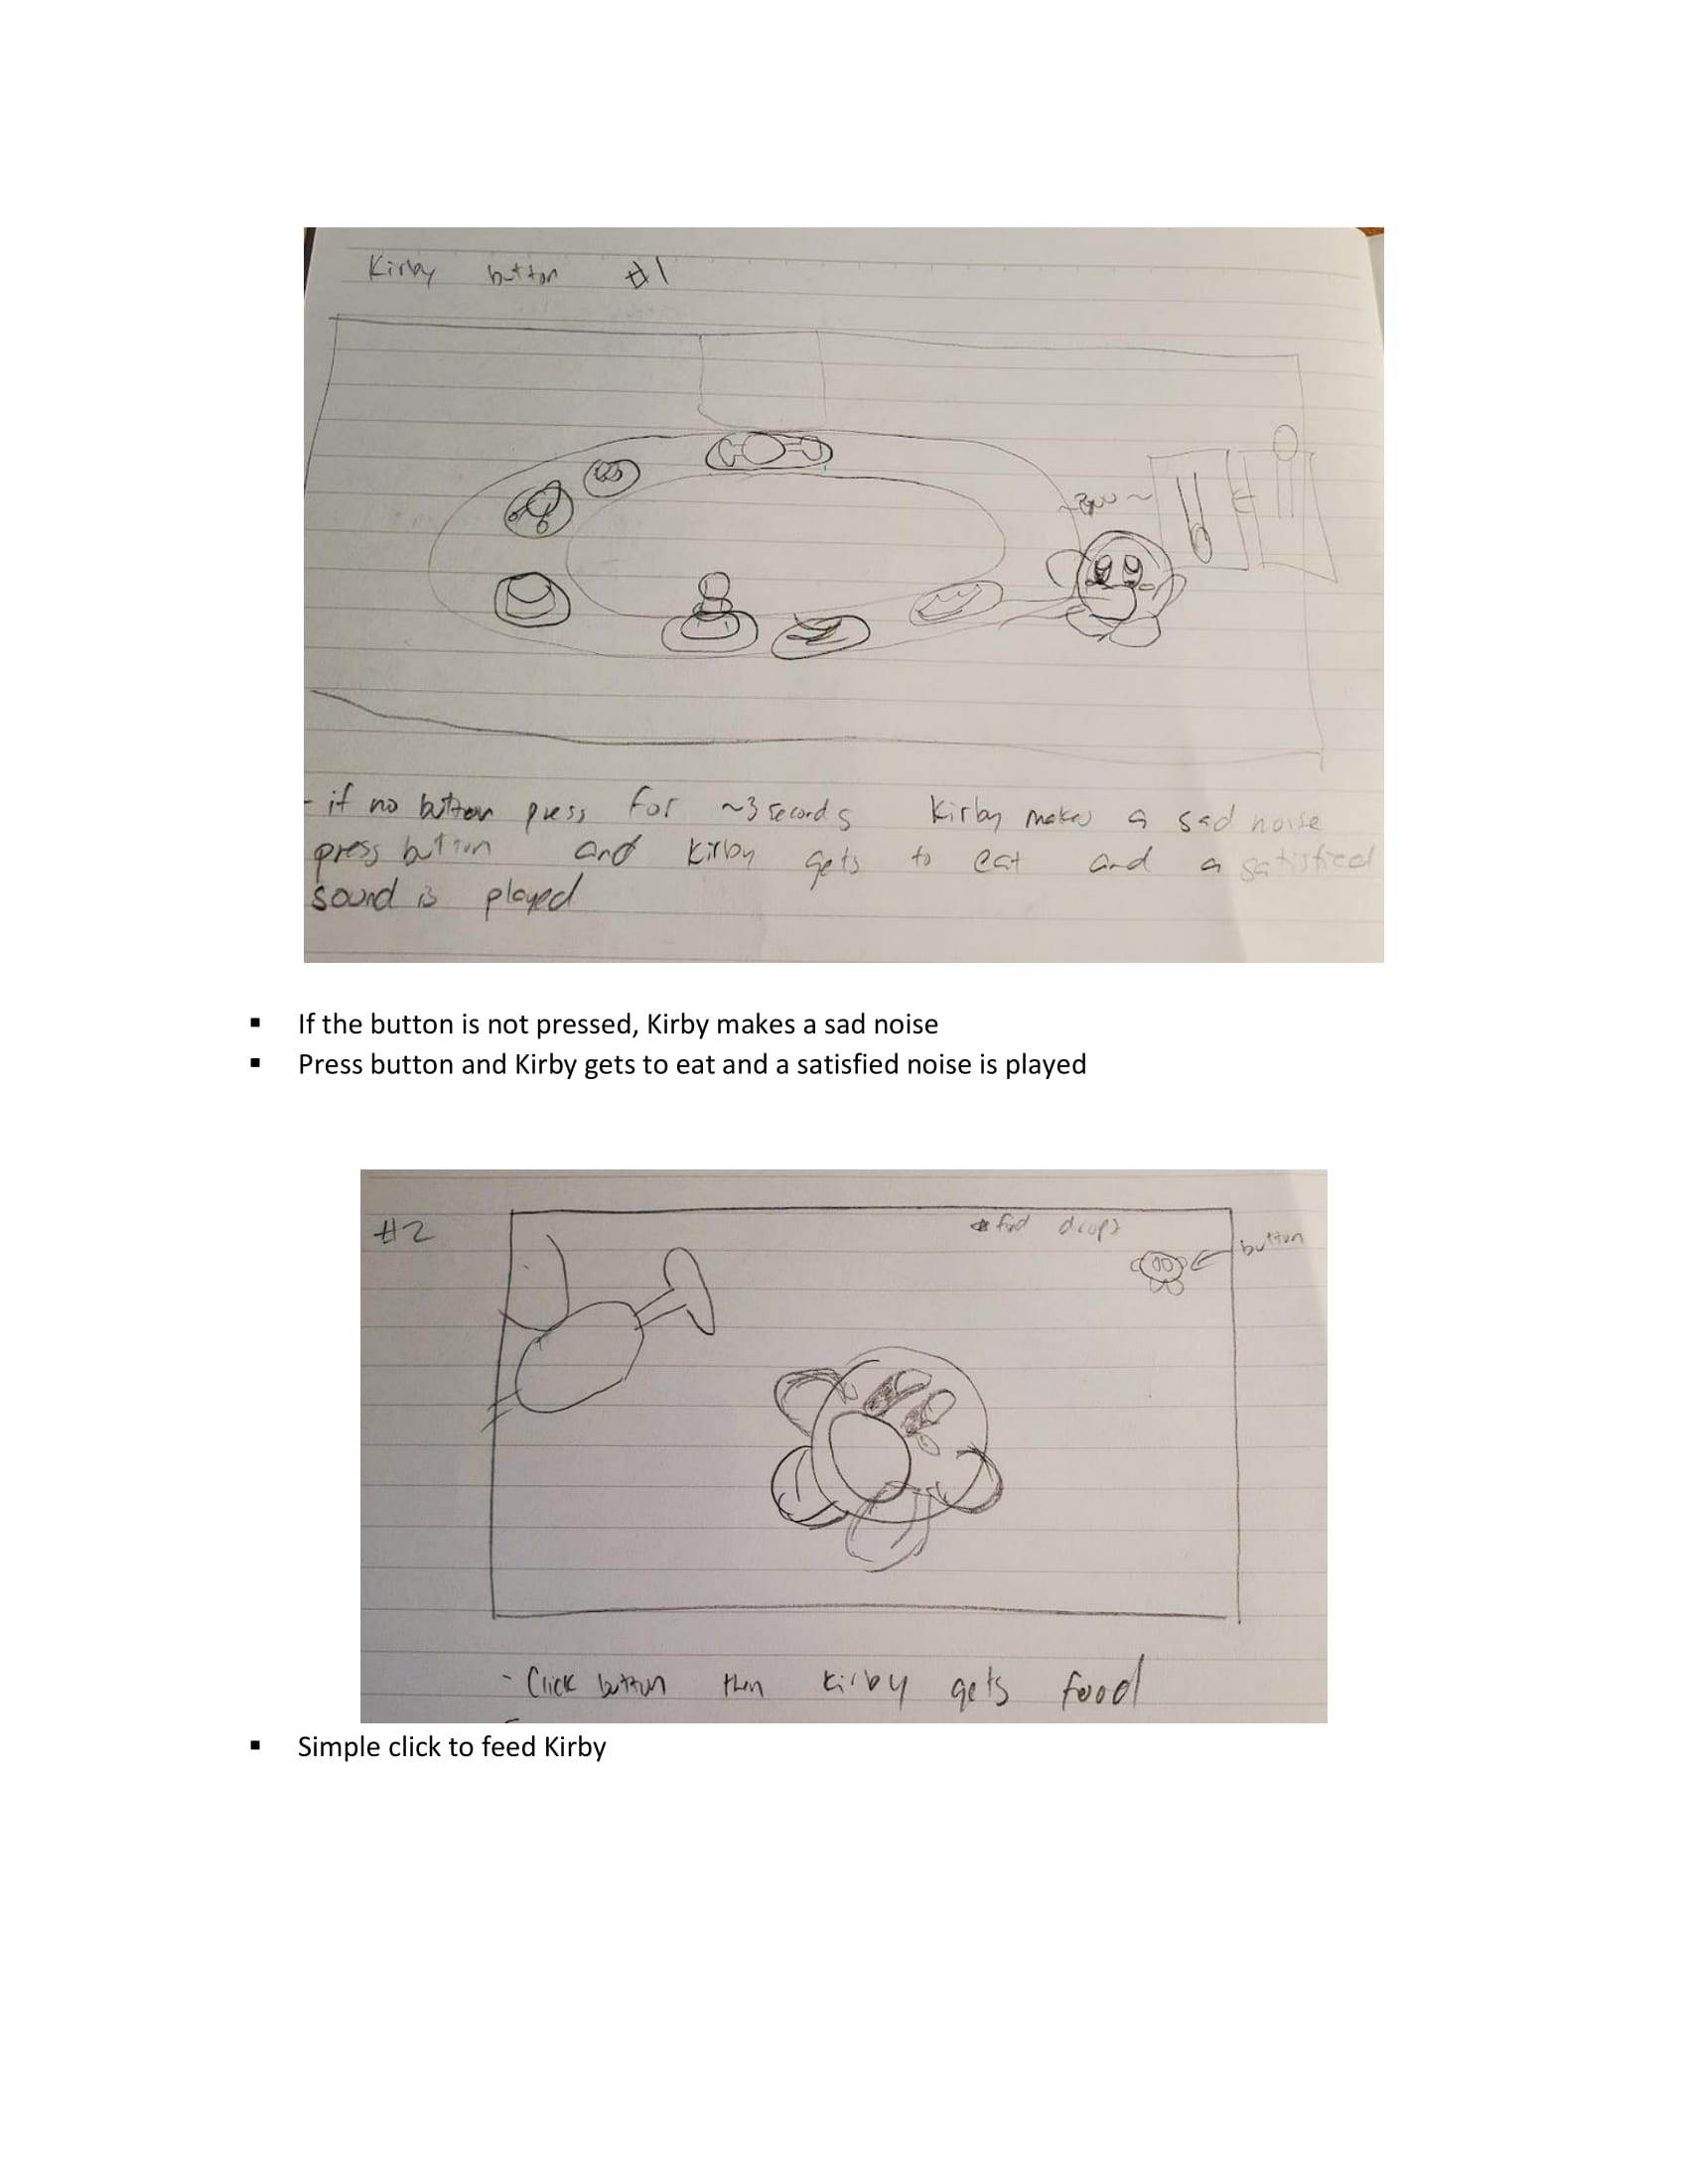 Kirby button #1
- if no button press for ~3 seconds Kirby makes a sad noise
press button and Kirby gets to eat and a satisfied
sound is played
▪ If the button is not pressed, Kirby makes a sad noise
▪ Press button and Kirby gets to eat and a satisfied noise is played
#2
food drops
button
- Click button then Kirby gets food
▪ Simple click to feed Kirby